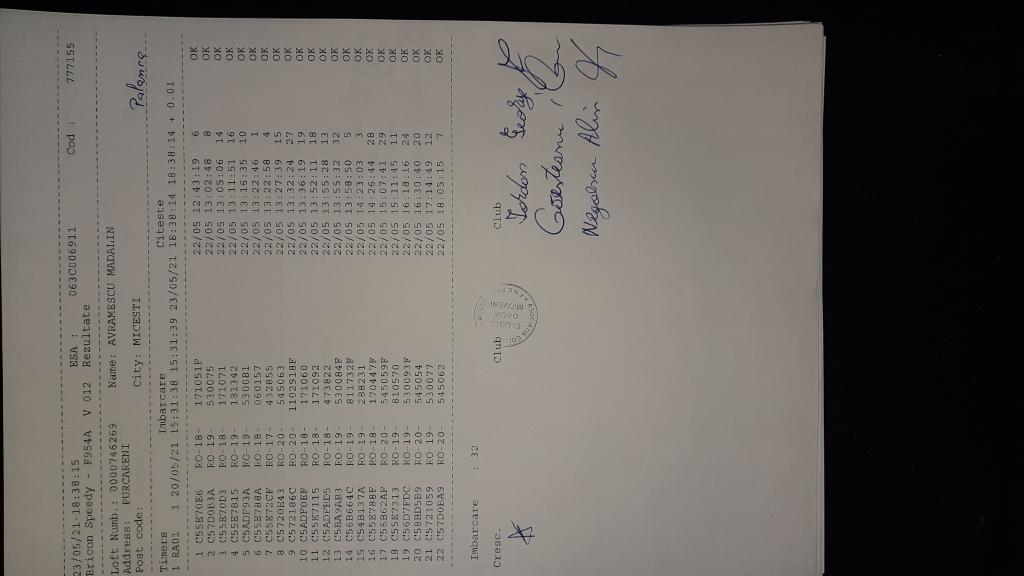 23/05/21-18:38:15 ESA : 063C006911 Cod : 777155
Bricon Speedy - F954A V 012 Rezultate
Loft Numb.: 0000746269 Name: AVRAMESCU MADALIN
Address: PURCARENI
Post code: City: MICESTI Palanca
Timers Imbarcare Citeste
1 RA01 1 20/05/21 15:31:38 15:31:39 23/05/21 18:38:14 18:38:14 + 0.01
1 C55E70E6 RO-18- 171051F 22/05 12:43:19 6 OK
2 C57D0B3A RO-19- 530075 22/05 13:02:48 8 OK
3 C55E70D3 RO-18- 171071 22/05 13:05:06 14 OK
4 C55E7815 RO-19- 181342 22/05 13:11:51 16 OK
5 C5ADF93A RO-19- 530081 22/05 13:16:35 10 OK
6 C55E788A RO-18- 060157 22/05 13:22:46 1 OK
7 C55E72CF RO-17- 432855 22/05 13:22:58 4 OK
8 C5720E43 RO-20- 545063 22/05 13:27:39 15 OK
9 C572186C RO-20- 1102918F 22/05 13:32:24 27 OK
10 C5ADF0EF RO-18- 171060 22/05 13:36:19 19 OK
11 C55E7115 RO-18- 171092 22/05 13:52:11 18 OK
12 C5ADFED5 RO-18- 473822 22/05 13:55:28 13 OK
13 C5BA9AB3 RO-19- 530084F 22/05 13:55:32 32 OK
14 C56B664C RO-19- 811732F 22/05 13:58:50 5 OK
15 C54B137A RO-19- 288231 22/05 14:23:03 3 OK
16 C55E788F RO-18- 170447F 22/05 14:26:44 28 OK
17 C56B62AF RO-20- 545059F 22/05 15:07:41 29 OK
18 C55E7313 RO-19- 810570 22/05 15:11:45 11 OK
19 C56D7FDC RO-19- 530093F 22/05 16:18:16 24 OK
20 C58BD5B9 RO-20- 545054 22/05 16:30:40 20 OK
21 C5721059 RO-19- 530077 22/05 17:14:49 12 OK
22 C57D0EA9 RO-20- 545062 22/05 18:05:15 7 OK
Imbarcare : 32
Cresc. Club Club
CLUBUL
DACIA
MIOVENI
Iordan George
Negoescu Alin